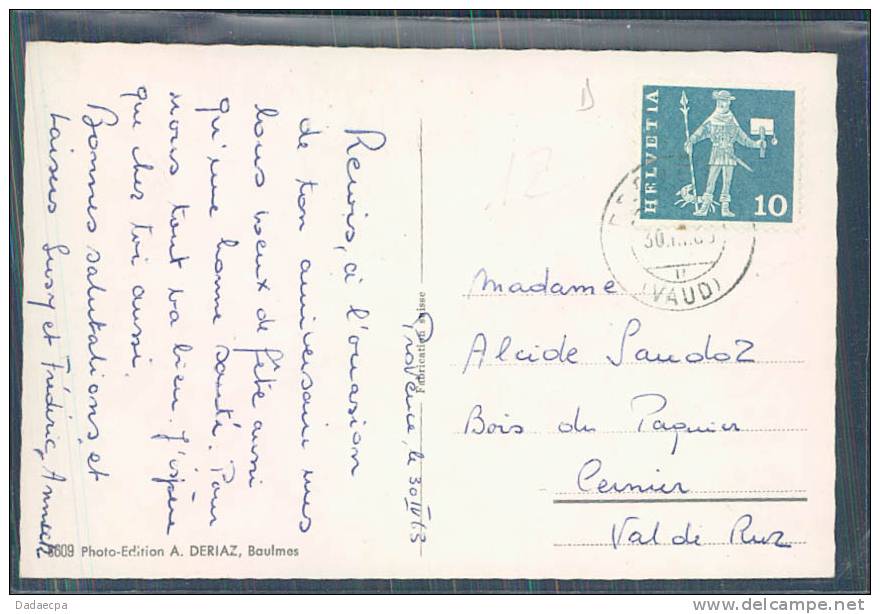 Provence, le 30 IV 63
Reçois, à l'occasion
de ton anniversaire mes
bons vœux de fête aussi
qu'une bonne santé. Pour
nous tout va bien. J'espère
que chez toi aussi.
Bonnes salutations, et
baisers Susy et Frédéric,
Fabrication suisse
HELVETIA
10
30.
(VAUD)
Madame
Alcide Sandoz
Bois du Paquier
Cernier
Val de Ruz
8609 Photo-Edition A. DERIAZ, Baulmes
Dadaecpa
http://www.delcampe.net